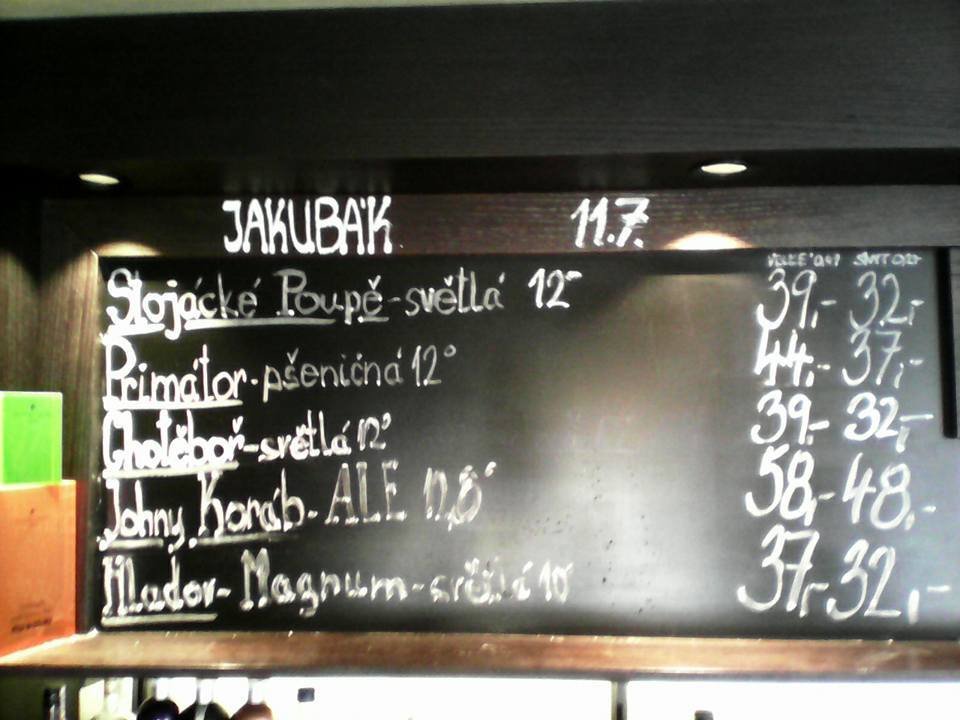 JAKUBÁK 11.7.
Stojácké Poupě - světlá 12° 39,- 32,-
Primátor - pšeničná 12° 44,- 37,-
Chotěboř - světlá 12° 39,- 32,-
Johny Koráb - ALE 58,- 48,-
Magnum - světlá 10° 37,- 32,-